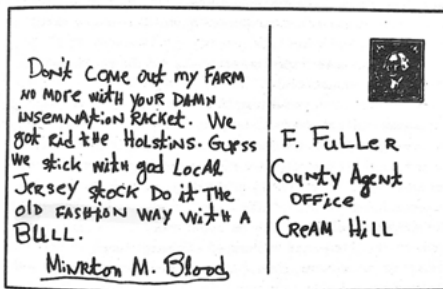 Don't Come out my FARM
no more with your DAMN
insemnation racket. We
got rid the Holstins. Guess
we stick with god Local
Jersey stock Do it the
old fashion way with a
Bull.
Minkton M. Blood
F. Fuller
County Agent
office
Cream Hill